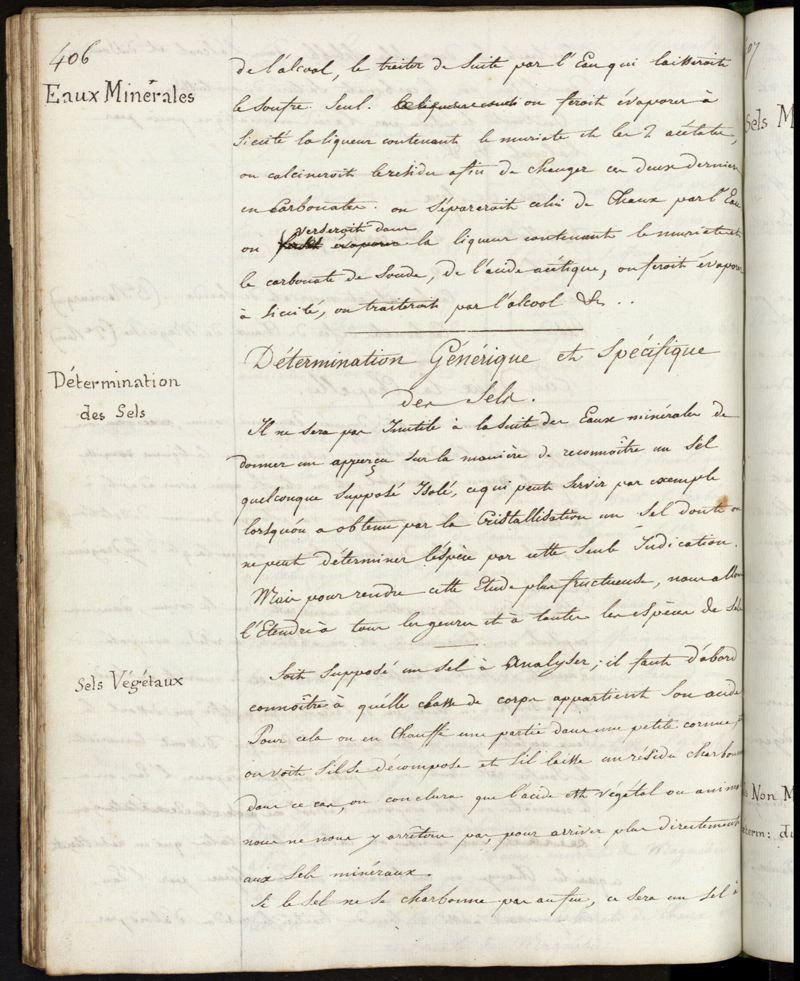 406
Eaux Minérales
de l'alcool, le traiter de suite par l'Eau qui laisseroit
le soufre seul. on feroit évaporer à
siccité la liqueur contenant le muriate et les 2 acétates,
on calcineroit le résidu afin de changer ces deux derniers
en Carbonates. on sépareroit celui de Chaux par l'Eau
verseroit dans
on feroit évaporer la liqueur contenant le muriate et
le carbonate de Soude, de l'acide acétique, on feroit évaporer
à siccité, on traiteroit par l'alcool &c..
Détermination Générique et Spécifique
des Sels.
Détermination
des Sels
Il ne sera pas Inutile à la suite des Eaux minérales de
donner un apperçu sur la manière de reconnoître un Sel
quelconque supposé Isolé, ce qui peut servir par exemple
lorsqu'on a obtenu par la Cristallisation un Sel dont on
ne peut déterminer l'espèce par cette seule Indication.
Mais pour rendre cette Etude plus fructueuse, nous allons
l'Etendre à tous les genres et à toutes les espèces de Sels
Sels Végétaux
Soit supposé un sel à Analyser; il faut d'abord
connoître à quélle classe de corps appartient son acide
Pour cela on en Chauffe une partie dans une petite cornue,
on voit s'il se décompose et s'il laisse un résidu charbonneux
dans ce cas, on conclura que l'acide est végétal ou animal
nous ne nous y arrêtons pas, pour arriver plus directement
aux sels minéraux.
Si le Sel ne se charbonne pas au feu, ce sera un sel à
07
Sels M
Non M
term: d